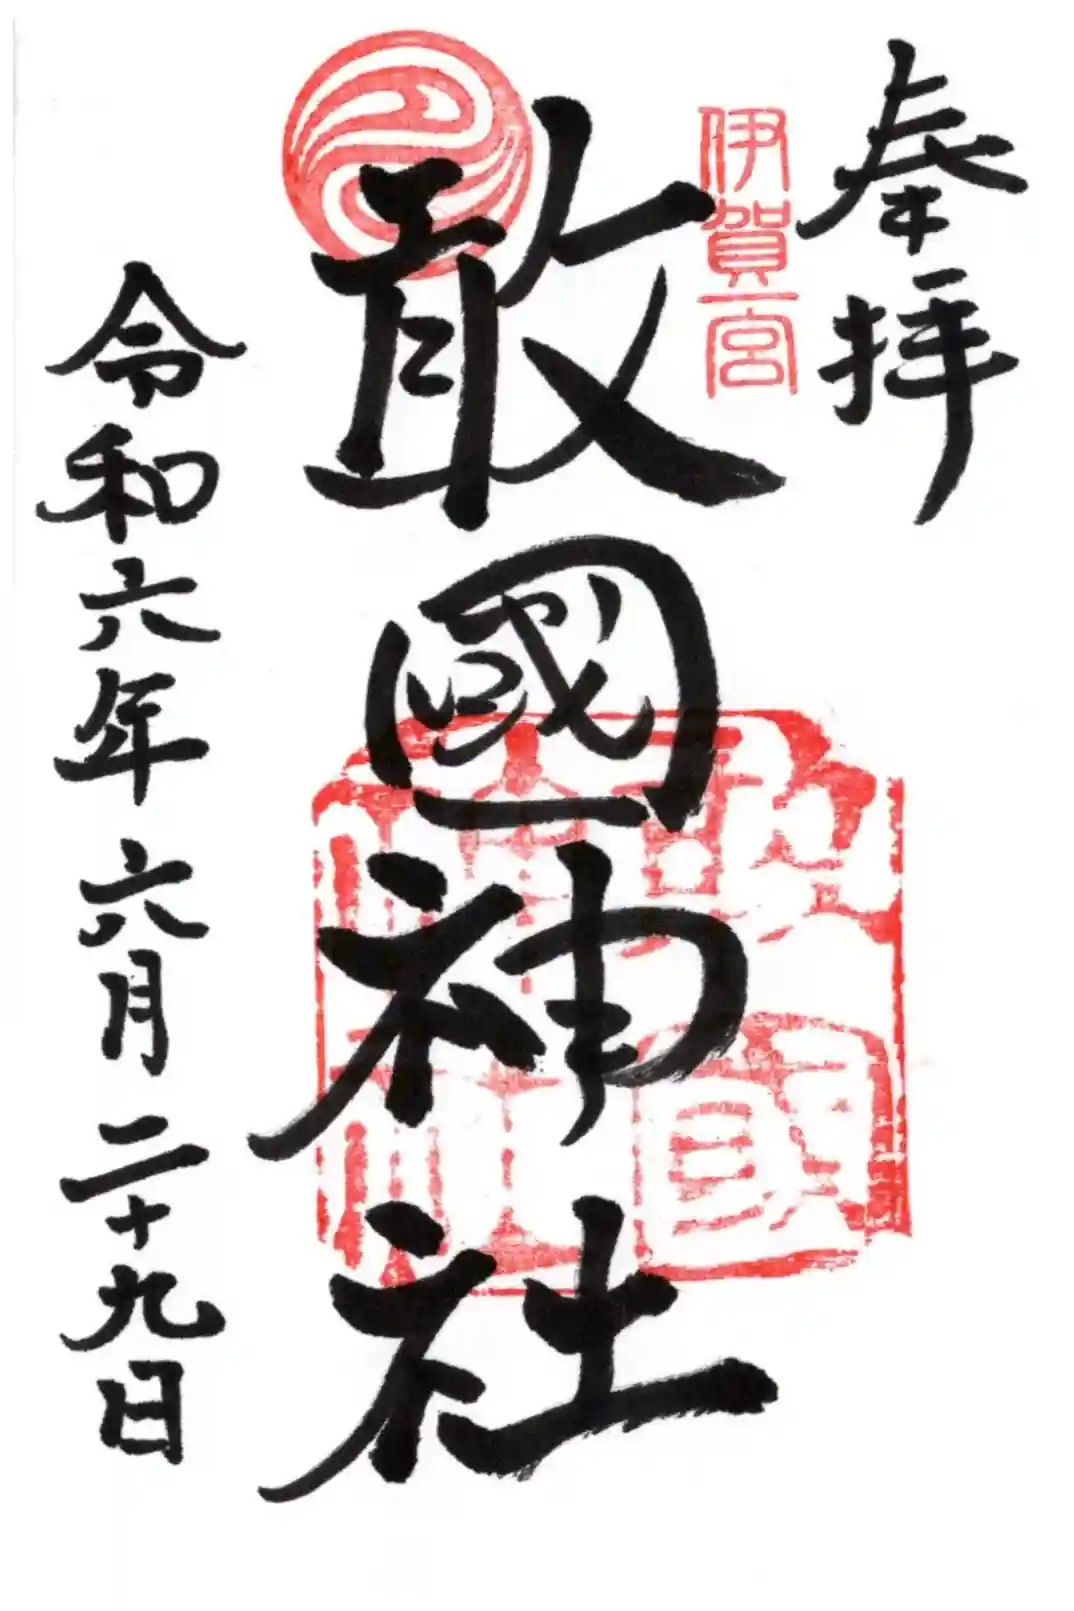 奉拝
伊賀一宮
敢國神社
令和六年六月二十九日